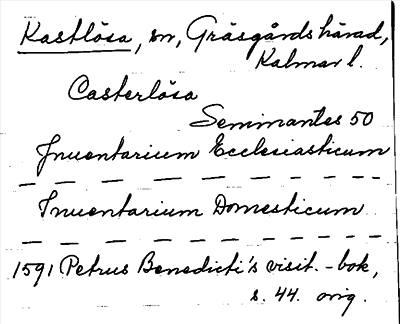 Kastlösa, sn, Gräsgårds härad,
Kalmar l.
Casterlösa
Seminantes 50
Inventarium Ecclesiasticum
Inventarium Domesticum
1591 Petrus Benedicti's visit.-bok,
s. 44. orig.